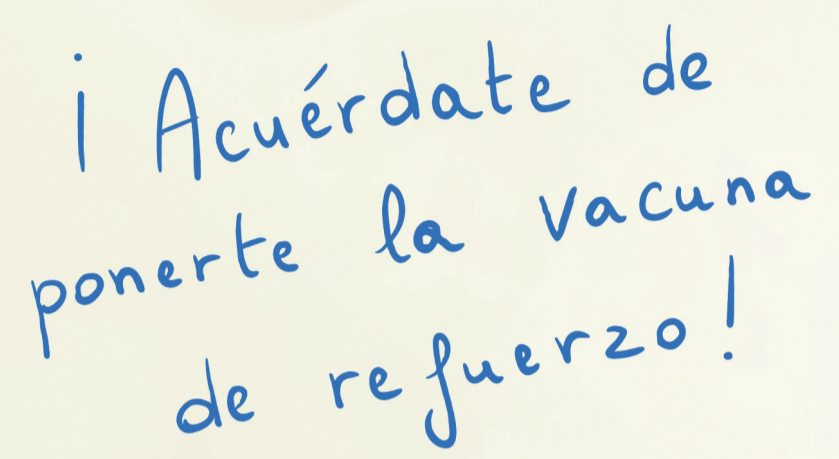 ¡Acuérdate de
ponerte la vacuna
de refuerzo!